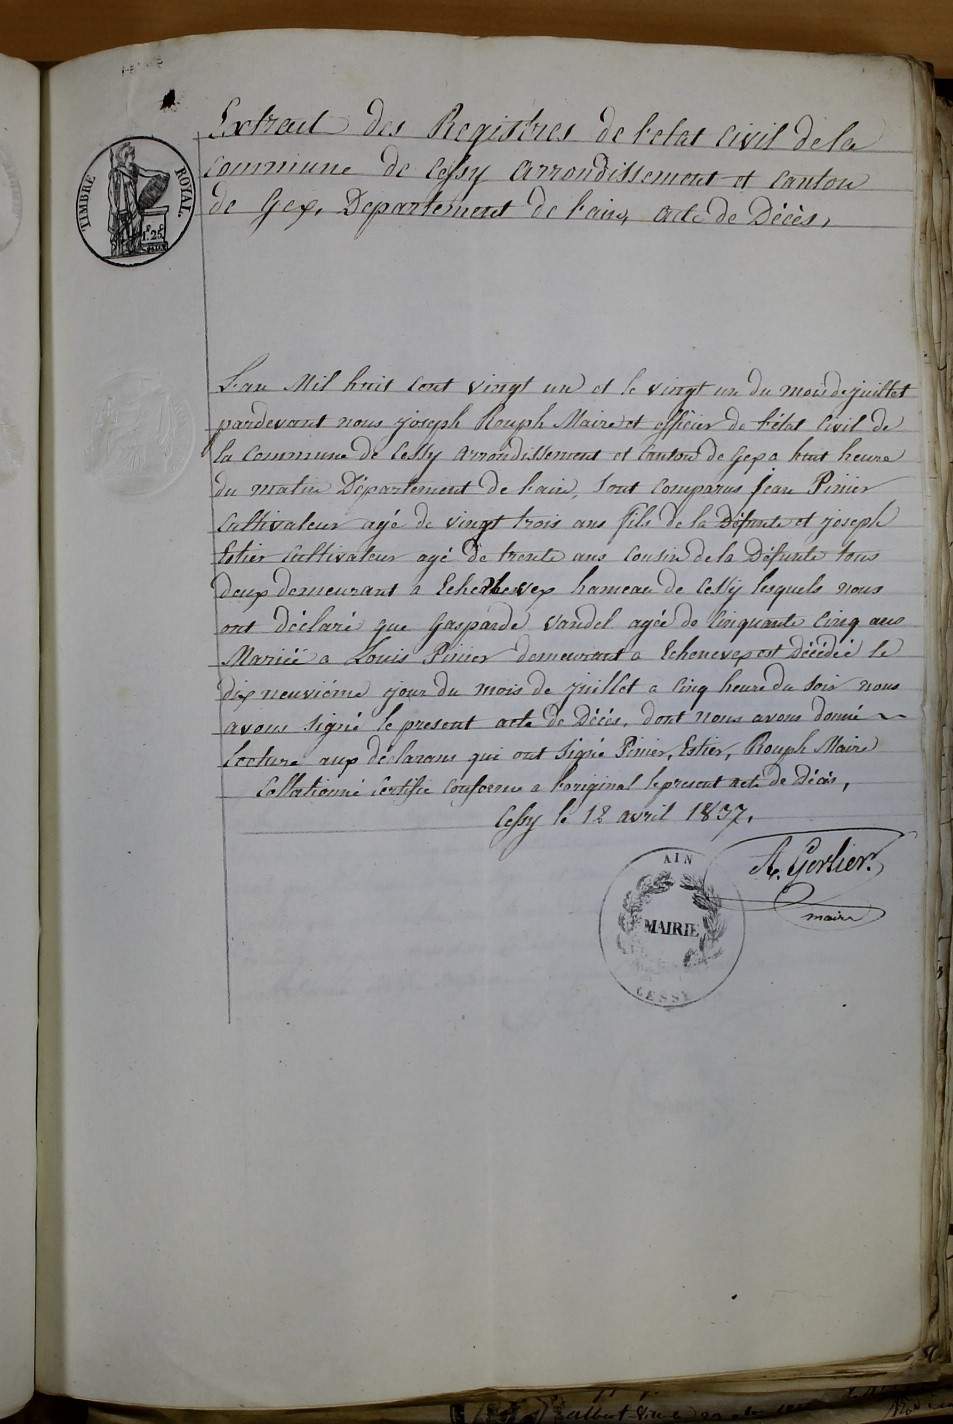 TIMBRE ROYAL
1f 25c
Extrait des Registres de l'etat Civil de la
Commune de Cessy Arrondissement et Canton
de Gex, Departement de l'ain, acte de Décès,
L'an Mil huit Cent vingt un et le vingt un du mois de juillet
pardevant nous joseph Rouph Maire et officier de l'état Civil de
la Commune de Cessy Arrondissement et Canton de Gex a huit heure
du matin Département de l'ain, Sont Comparus Jean Pinier
Cultivateur agé de vingt trois ans fils de la Défunte et joseph
Estier Cultivateur agé de trente ans Cousin de la Défunte tous
deux demeurant a Echenevex hameau de Cessy lesquels nous
ont déclaré que Gasparde Vandel agée de Cinquante Cinq ans
Mariée a Louis Pinier demeurant a Echenevex est Décédée le
dix neuvième jour du mois de juillet a Cinq heure du Soir nous
avons Signé le present acte de Décès, dont nous avons donné
Lecture aux déclarans qui ont Signé Pinier, Estier, Rouph Maire
Collationné Certifié Conforme a l'original le present acte de Décès,
Cessy le 12 avril 1837.
A. Gerlier
maire
AIN
MAIRIE
CESSY